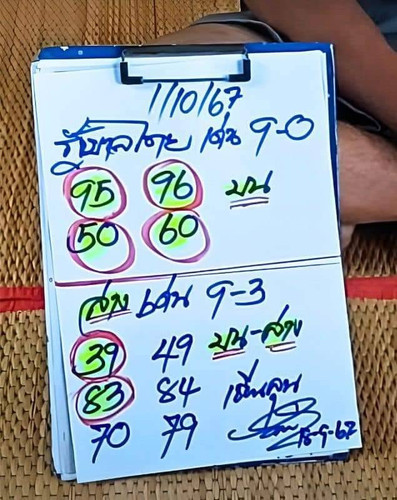 1/10/67
รัฐบาลไทย เด่น 9-0
95 96 บน
50 60
ล่าง เด่น 9-3
39 49 บน-ล่าง
83 84
70 79